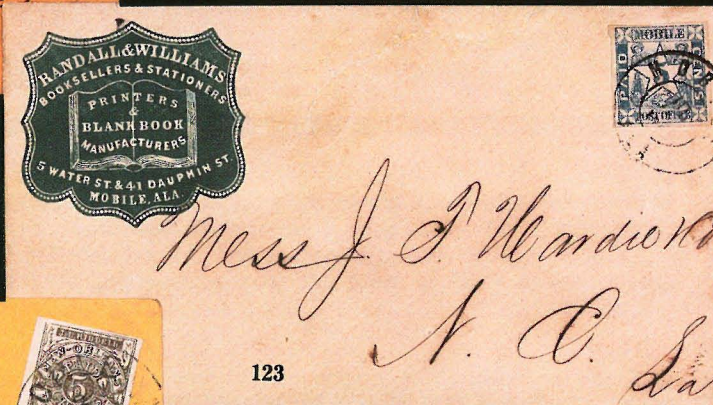 RANDALL & WILLIAMS
BOOKSELLERS & STATIONERS
PRINTERS
&
BLANK BOOK
MANUFACTURERS
5 WATER ST. & 41 DAUPHIN ST.
MOBILE, ALA.
MOBILE
PAID
CENTS
5
POST OFFICE
Mess J. T. Hardie
N. O.
La
NEW-ORLEANS
5
123